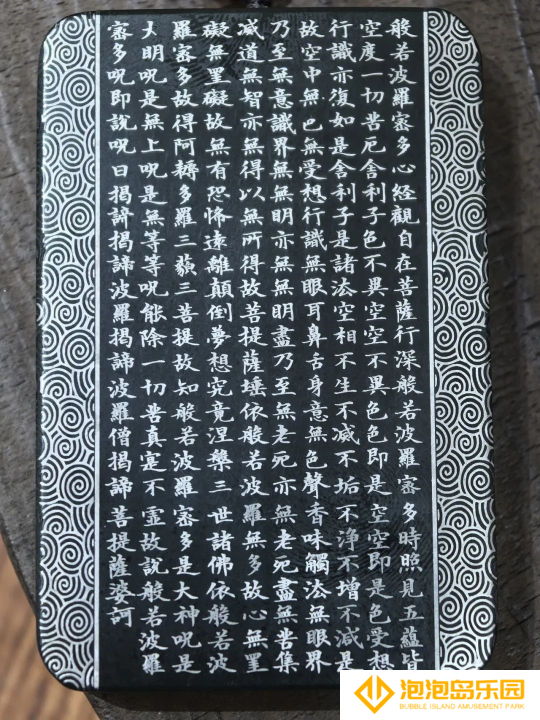 般若波羅蜜多心經觀自在菩薩行深般若波羅蜜多時照見五蘊皆
空度一切苦厄舍利子色不異空空不異色色即是空空即是色受想
行識亦復如是舍利子是諸法空相不生不滅不垢不淨不增不減是
故空中無色無受想行識無眼耳鼻舌身意無色聲香味觸法無眼界
乃至無意識界無無明亦無無明盡乃至無老死亦無老死盡無苦集
滅道無智亦無得以無所得故菩提薩埵依般若波羅無多故心無罣
礙無罣礙故無有恐怖遠離顛倒夢想究竟涅槃三世諸佛依般若波
羅蜜多故得阿耨多羅三藐三菩提故知般若波羅蜜多是大神呪是
大明呪是無上呪是無等等呪能除一切苦真寔不霊故說般若波羅
蜜多呪即說呪曰揭諦揭諦波羅揭諦波羅僧揭諦菩提薩婆訶
泡泡岛乐园
BUBBLE ISLAND AMUSEMENT PARK